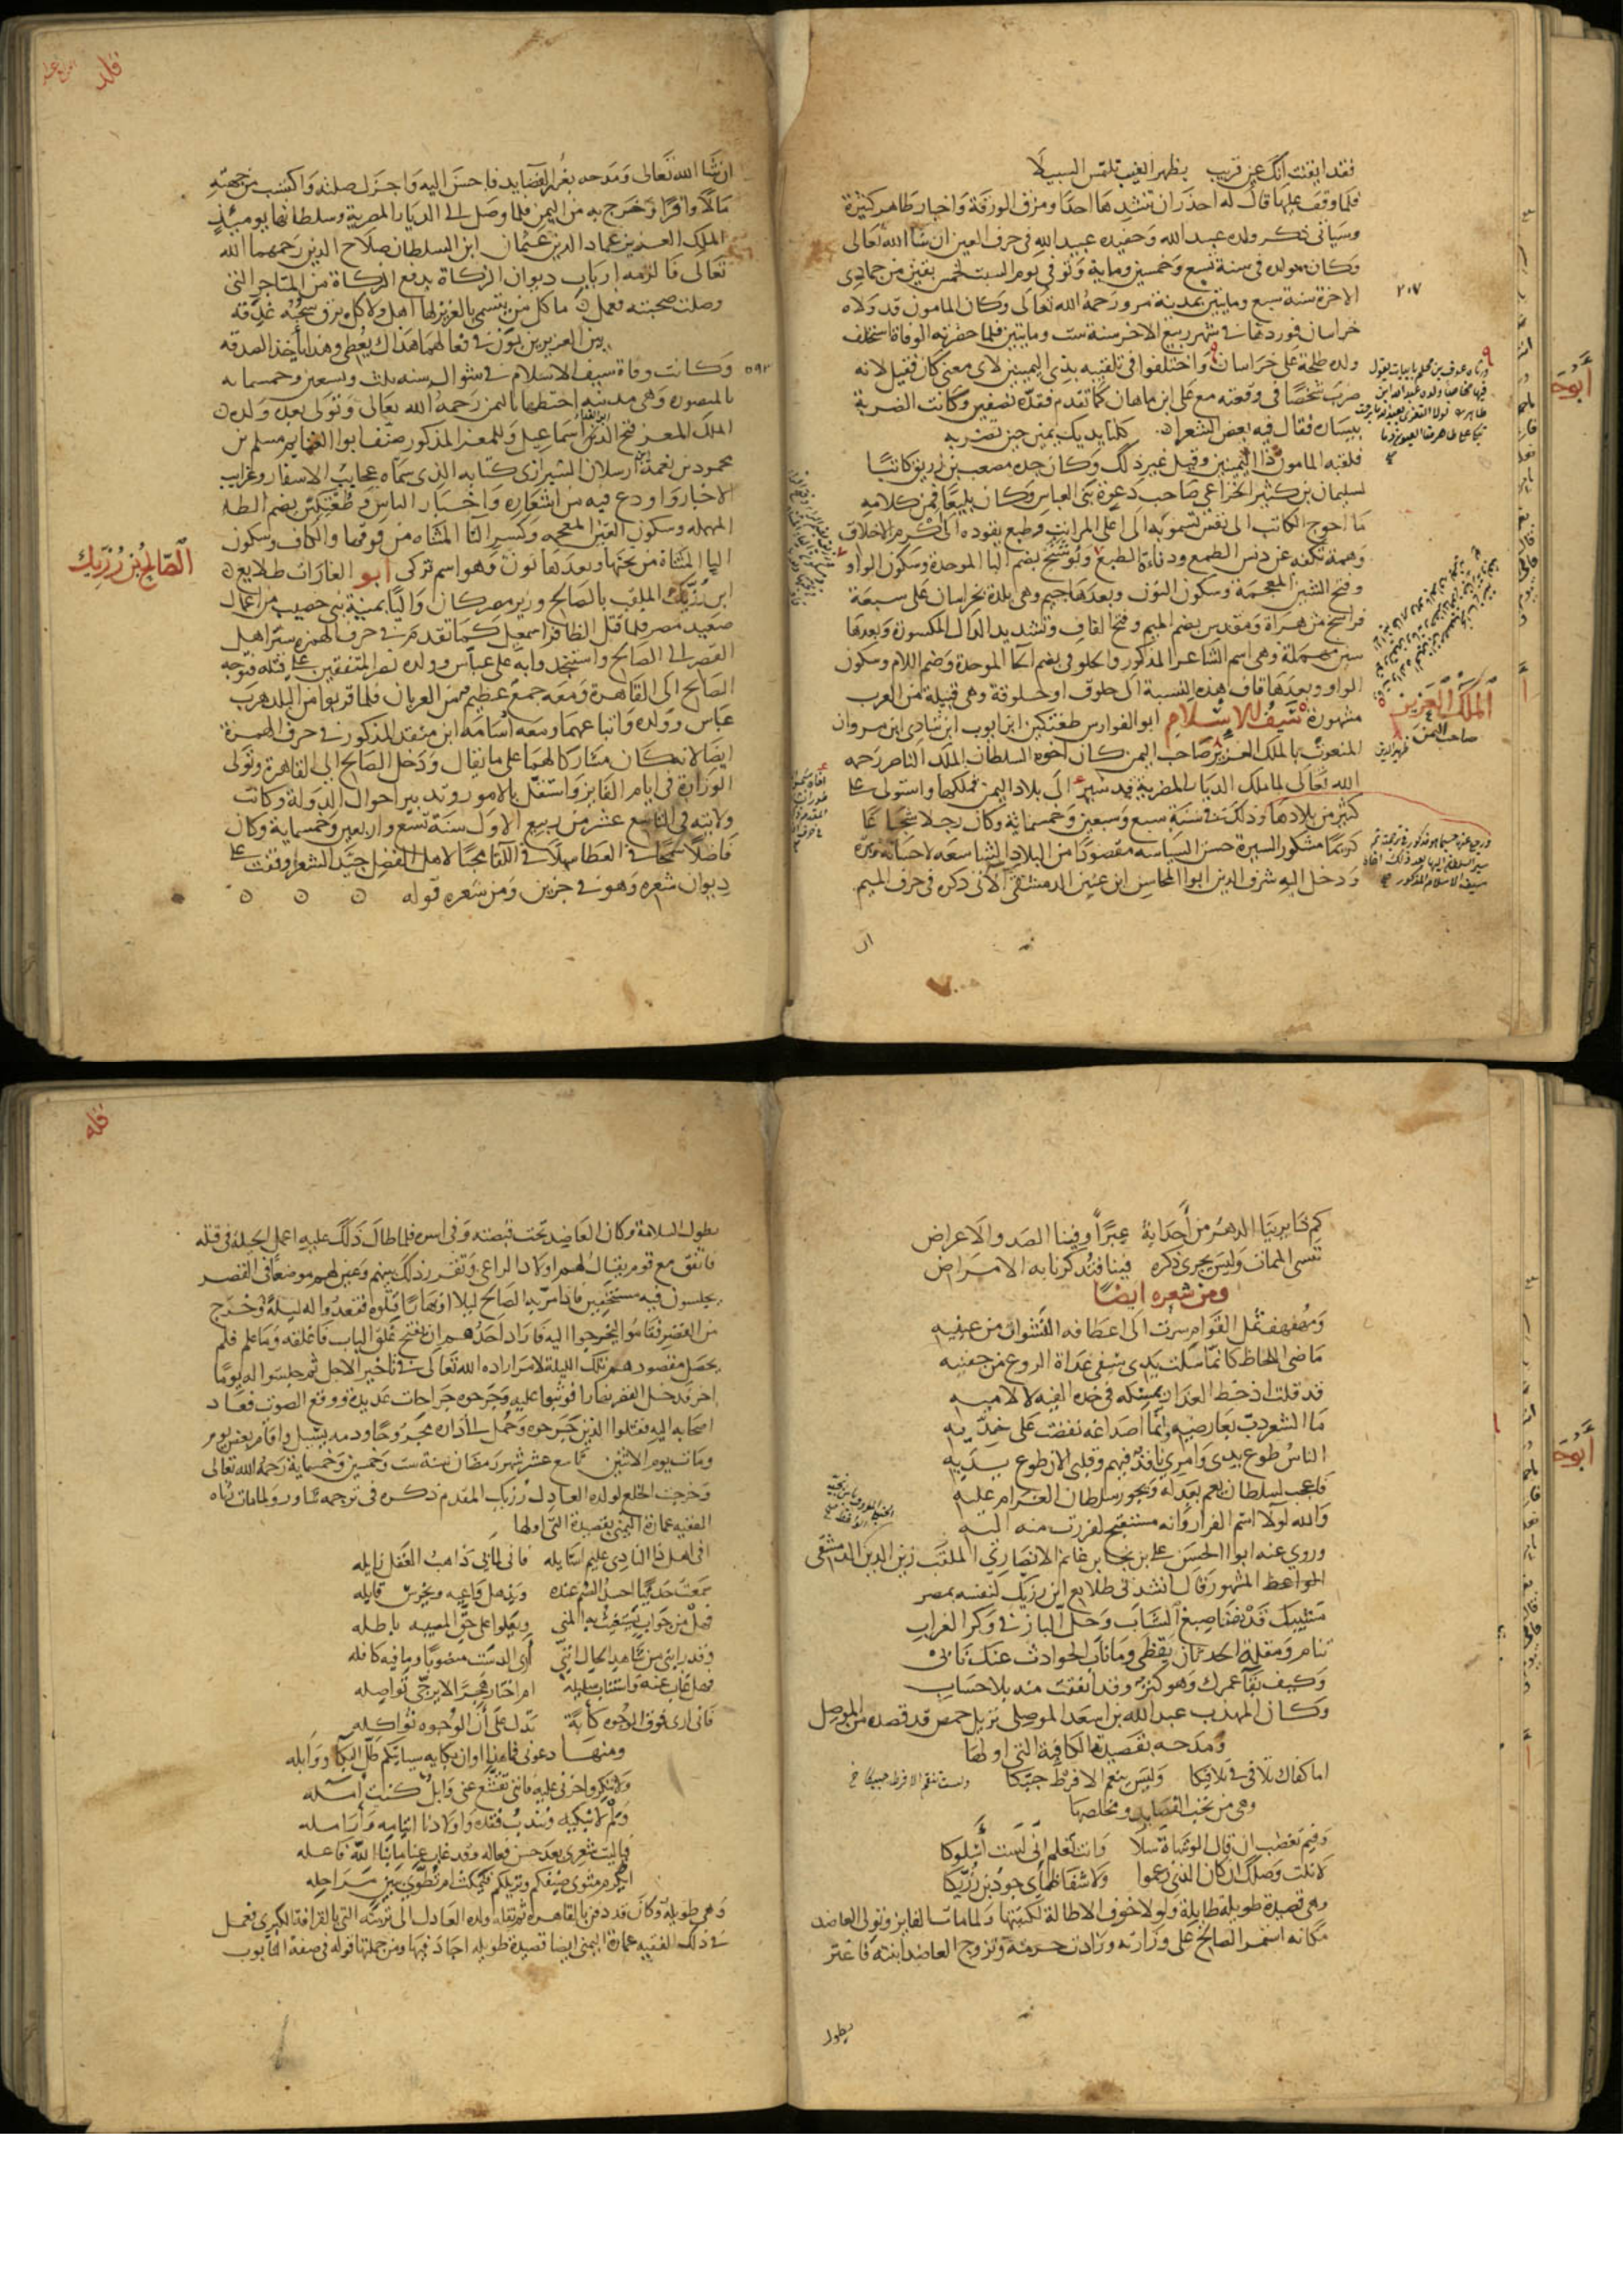 فقد ايقنت انك عن قريب بظهر الغيب تلتمس السبيلا
فلما وقف عليها قال له احذر ان تنشدها احدًا ومزق الورقة واخبار طاهر كثيرة
وسياتي ذكر ولده عبد الله وحفيده عبيد الله في حرف العين ان شا الله تعالى
وكان مولده في سنة تسع وخمسين وماية وتوفي يوم السبت لخمس بقين من جمادى
الاخرة سنة سبع ومايتين بمدينة مرو رحمه الله تعالى وكان المامون قد ولاه
٢٠٧
خراسان فوردها في شهر ربيع الاخر سنة ست ومايتين فلما حضرته الوفاة استخلف
ولده طلحة على خراسان واختلفوا في تلقيبه بذي اليمينين لاي معنى كان فقيل لانه
ضرب شخصًا في وقعته مع علي ابن ماهان كما تقدم فقدّه نصفين وكانت الضربة
بيساره فقال فيه بعض الشعرا كلتا يديك يمين حين تضربه
فلقبه المامون ذا اليمينين وقيل غير ذلك وكان جده مصعب بن رزيق كاتبًا
لسليمان بن كثير الخزاعي صاحب دعوة بني العباس وكان بليغًا فمن كلامه
ما احوج الكاتب الى نفس تسمو به الى اعلى المراتب وطبع يقوده الى اكرم الاخلاق
وهمة تكفه عن دنس الطمع ودناءة الطبع وبوشنج بضم البا الموحدة وسكون الواو
وفتح الشين المعجمة وسكون النون وبعدها جيم وهي بلدة بخراسان على سبعة
فراسخ من هراة ومقدس بضم الميم وفتح القاف وتشديد الدال المكسورة وبعدها
سين مهملة وهي اسم الشاعر المذكور والخلوقي بضم الخا الموحدة وضم اللام وسكون
الواو وبعدها قاف هذه النسبة الى خلوق او خلوقة وهي قبيلة من العرب
مشهورة سيف الاسلام ابو الفوارس طغتكين ابن ايوب ابن شاذي ابن مروان
الملك العزيز
صاحب اليمن
ظهير الدين
المنعوت بالملك العزيز صاحب اليمن كان اخوه السلطان الملك الناصر رحمه
الله تعالى لما ملك الديار المصرية قد سير الى بلاد اليمن فملكها واستولى على
كثير من بلادها وذلك في سنة سبع وسبعين وخمسماية وكان رجلا شجاعًا
كريمًا مشكور السيرة حسن السياسة مقصودًا من البلاد الشاسعه لاحسانه وبرّه
ودخل اليه شرف الدين ابو المحاسن ابن عنين الدمشقي الاتي ذكره في حرف الميم
ان شا الله تعالى ومدحه بغر القصايد فاحسن اليه واجزل صلته واكتسب من جهته
مالا وافرًا وخرج به من اليمن فلما وصل الى الديار المصرية وسلطانها يوميذ
الملك العزيز عماد الدين عثمان ابن السلطان صلاح الدين رحمهما الله
تعالى فالزمه ارباب ديوان الزكاة بدفع الزكاة من المتاجر التي
وصلت صحبته فعمل ما كل من يتسمى بالعزيز لها اهل ولا كل برق سحبه غدقه
بين العزيزين بون في فعالهما هذاك يعطي وهذا ياخذ الصدقه
وكانت وفاة سيف الاسلام في شوال سنه ثلث وتسعين وخمسمايه
٥٩٣
بالمنصوره وهي مدينه اختطها باليمن رحمه الله تعالى وتولى بعده ولده
الملك المعز فتح الدين اسماعيل وللمعز المذكور صنف ابوا الغنايم مسلم بن
محمود بن نعمة ارسلان الشيرازي كتابه الذي سماه عجايب الاسفار وغرايب
الاخبار واودع فيه من اشعاره واخبار الناس وطغتكين بضم الطا
المهمله وسكون الغين المعجمه وكسر التا المثناه من فوقها والكاف وسكون
اليا المثناة من تحتها وبعدها نون وهو اسم تركي ابو الغارات طلايع
الصّالح بن رزيك
ابن رزيك الملقب بالصالح وزير مصر كان واليًا بمنية بني خصيب من اعمال
صعيد مصر فلما قتل الظافر اسمعيل كما تقدم في حرف الهمزه سيّر اهل
القصر الى الصالح واستنجدوا به على عباس وولده نصر المتفقين على قتله فتوجه
الصالح الى القاهرة ومعه جمع عظيم من العربان فلما قربوا من البلد هرب
عباس وولده واتباعهما ومعه اسامة ابن منقد المذكور في حرف الهمزة
ايضا لانه كان مشاركا لهما على ما يقال ودخل الصالح الى القاهرة وتولى
الوزارة في ايام الفايز واستقل بالامور وتدبير احوال الدولة وكانت
ولايته في التاسع عشر من ربيع الاول سنة تسع واربعين وخمسماية وكان
فاضلا سمحًا في العطا سهلا في اللقا محبا لاهل الفضل جيد الشعر وقفت على
ديوان شعره وهو في جزين ومن شعره قوله
كم ذا يرينا الدهر من احداثه عبرًا وفينا الصد والاعراض
ننسى الممات وليس يجري ذكره فينا فتذكرنا به الامراض
ومن شعره ايضًا
ومهفهف ثمل القوام سرت الى اعطافه النشوات من عينيه
ماضي اللحاظ كانما سلت يدي سيفي غداة الروع من جفنيه
قد قلت اذ خط العذار بمسكه في خده الفيه لا لاميه
ما الشعر دب بعارضيه وانما اصداغه نفضت على خديه
الناس طوع يدي وامري نافذ فيهم وقلبي الان طوع يديه
فاعجب لسلطان يعم بعدله ويجور سلطان الغرام عليه
والله لولا اسم الفرار وانه مستقبح لفررت منه اليه
وروي عنه ابوا الحسن علي بن نجا بن غانم الانصاري الملقب زين الدين الدمشقي
الواعظ المشهور قال انشدني طلايع ابن رزيك لنفسه بمصر
مشيبك قد نضا صبغ الشباب وحل الباز في وكر الغراب
تنام ومقلة الحدثان يقظى وما ناب الحوادث عنك نابي
وكيف بقا عمرك وهو كنز وقد انفقت منه بلا حساب
وكان المهذب عبد الله بن اسعد الموصلي نزيل حمص قد قصده من الموصل
ومدحه بقصيدته الكافية التي اولها
اما كفاك تلافي في تلافيكا ولست تنقم الا فرط حبيكا
وهي من نخب القصايد ومخلصها
وفيم تغضب ان قال الوشاة سلا وانت تعلم اني لست اسلوكا
لا نلت وصلك ان كان الذي زعموا ولا شفا ظمأي جود بن رزيكا
وهي قصيدة طويلة طايلة ولولا خوف الاطالة لكتبتها ولما مات الفايز وتولى العاضد
مكانه استمر الصالح على وزارته وزادت حرمته وتزوج العاضد ابنته فاغتر
بطول
بطول السلامة وكان العاضد تحت قبضته وفي اسره فلما طال ذلك عليه اعمل الحيلة في قتله
فاتفق مع قوم يقال لهم اولاد الراعي وتقرر ذلك بينهم وعين لهم موضعًا في القصر
يجلسون فيه مستخفين فاذا مرّ بهم الصالح ليلا او نهارًا قتلوه فقعدوا له ليلة وخرج
من القصر فقاموا ليخرجوا اليه فاراد احدهم ان يفتح غلق الباب فاغلقه وما علم فلم
يحصل مقصودهم تلك الليلة لامر اراده الله تعالى في تاخير الاجل ثم جلسوا له يومًا
اخر فدخل القصر نهارا فوثبوا عليه وجرحوه جراحات عديدة ووقع الصوت فعاد
اصحابه اليه فقتلوا الذين جرحوه وحمل الى داره مجروحًا ودمه يسيل واقام بعض يوم
ومات يوم الاثنين تاسع عشر شهر رمضان سنة ست وخمسين وخمسماية رحمه الله تعالى
وخرجت الخلع لولده العادل رزيك المقدم ذكره في ترجمه شاور ولما مات رثاه
الفقيه عمارة اليمني بقصيدة التي اولها
افي اهل ذا النادي عليم اسايله فاني لما بي ذاهب العقل ذاهله
سمعت حديثًا احسد الصم عنده ويذهل واعيه ويخرس قايله
فهل من جواب يستغيث به المنى ويعلوا على حق المصيبه باطله
وقد رابني من شاهد الحال انني ارى الدست منصوبًا وما فيه كافله
فهل غاب عنه واستناب سليله ام اختار هجرًا لا يرجّى تواصله
فاني ارى فوق الوجوه كابة تدل على ان الوجوه ثواكله
ومنها دعوني فما هذا اوان بكايه سياتيكم طل البكا ووابله
ولا تنكروا حزني عليه فانني تقشع عني وابل كنت آمله
ولم لا نبكيه ونندب فقده واولادنا ايتامه وارامله
فيا ليت شعري بعد حسن فعاله وقد غاب عنا ما بنا الله فاعله
ايكرم مثوى ضيفكم ونزيلكم فيمكث ام تطوى ببين مراحله
وهي طويلة وكان قد دفن بالقاهرة ثم نقله ولده العادل الى تربته التي بالقرافة الكبرى فعمل
في ذلك الفقيه عمارة اليمني ايضا قصيدة طويله اجاد فيها ومن جملتها قوله في صفة التابوت